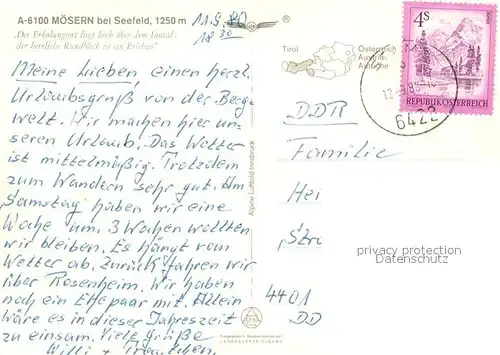 A-6100 MÖSERN bei Seefeld, 1250 m
"Der Erholungsort liegt hoch über dem Inntal:
der herrliche Rundblick ist ein Erlebnis"
11.9.80
18 30
Meine Lieben, einen herzl.
Urlaubsgruß von der Berg-
welt. Wir machen hier un-
seren Urlaub. Das Wetter
ist mittelmäßig. Trotzdem
zum Wandern sehr gut. Am
Samstag haben wir eine
Woche um, 3 Wochen wollten
wir bleiben. Es hängt vom
Wetter ab. Zurück fahren wir
über Rosenheim. Wir haben
noch ein Ehepaar mit. Allein
wäre es in dieser Jahreszeit
zu einsam. Viele Grüße
Willi +
Alpine Luftbild Innsbruck
Tirol
Österreich
Austria
Autriche
4S
REPUBLIK ÖSTERREICH
6422
DDR
Familie
Hei
Str
privacy protection
Datenschutz
4401
DD